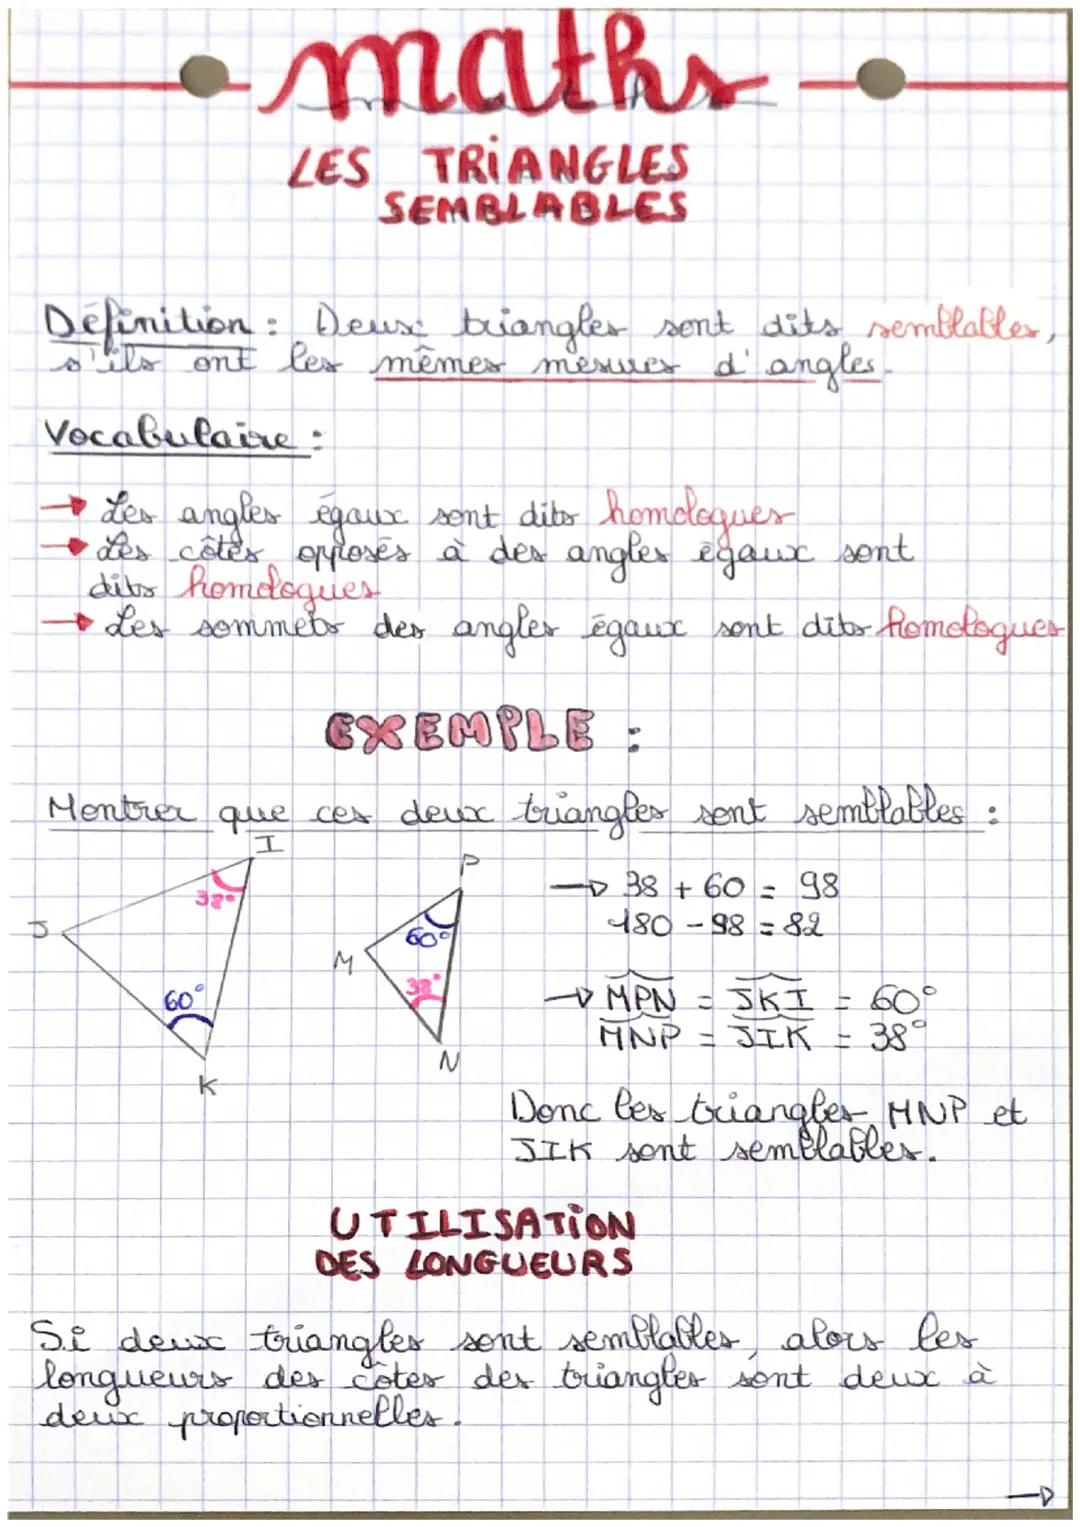 maths
LES TRIANGLES
SEMBLABLES
Définition : Deux triangles sont dits semblables,
s'ils ont les mêmes mesures d'angles.
Vocabulaire :
→ Les angles égaux sont dits homologues
→ Les côtés opposés à des angles égaux sont
dits homologues
→ Les sommets des angles égaux sont dits homologues
EXEMPLE :
Montrer que ces deux triangles sont semblables :
I
38°
J
60°
K
P
60°
M
38°
N
→ 38 + 60 = 98
180 - 98 = 82
→ MPN = JKI = 60°
MNP = JIK = 38°
Donc les triangles MNP et
JIK sont semblables.
UTILISATION
DES LONGUEURS
Si deux triangles sont semblables, alors les
longueurs des côtés des triangles sont deux à
deux proportionnelles.
→